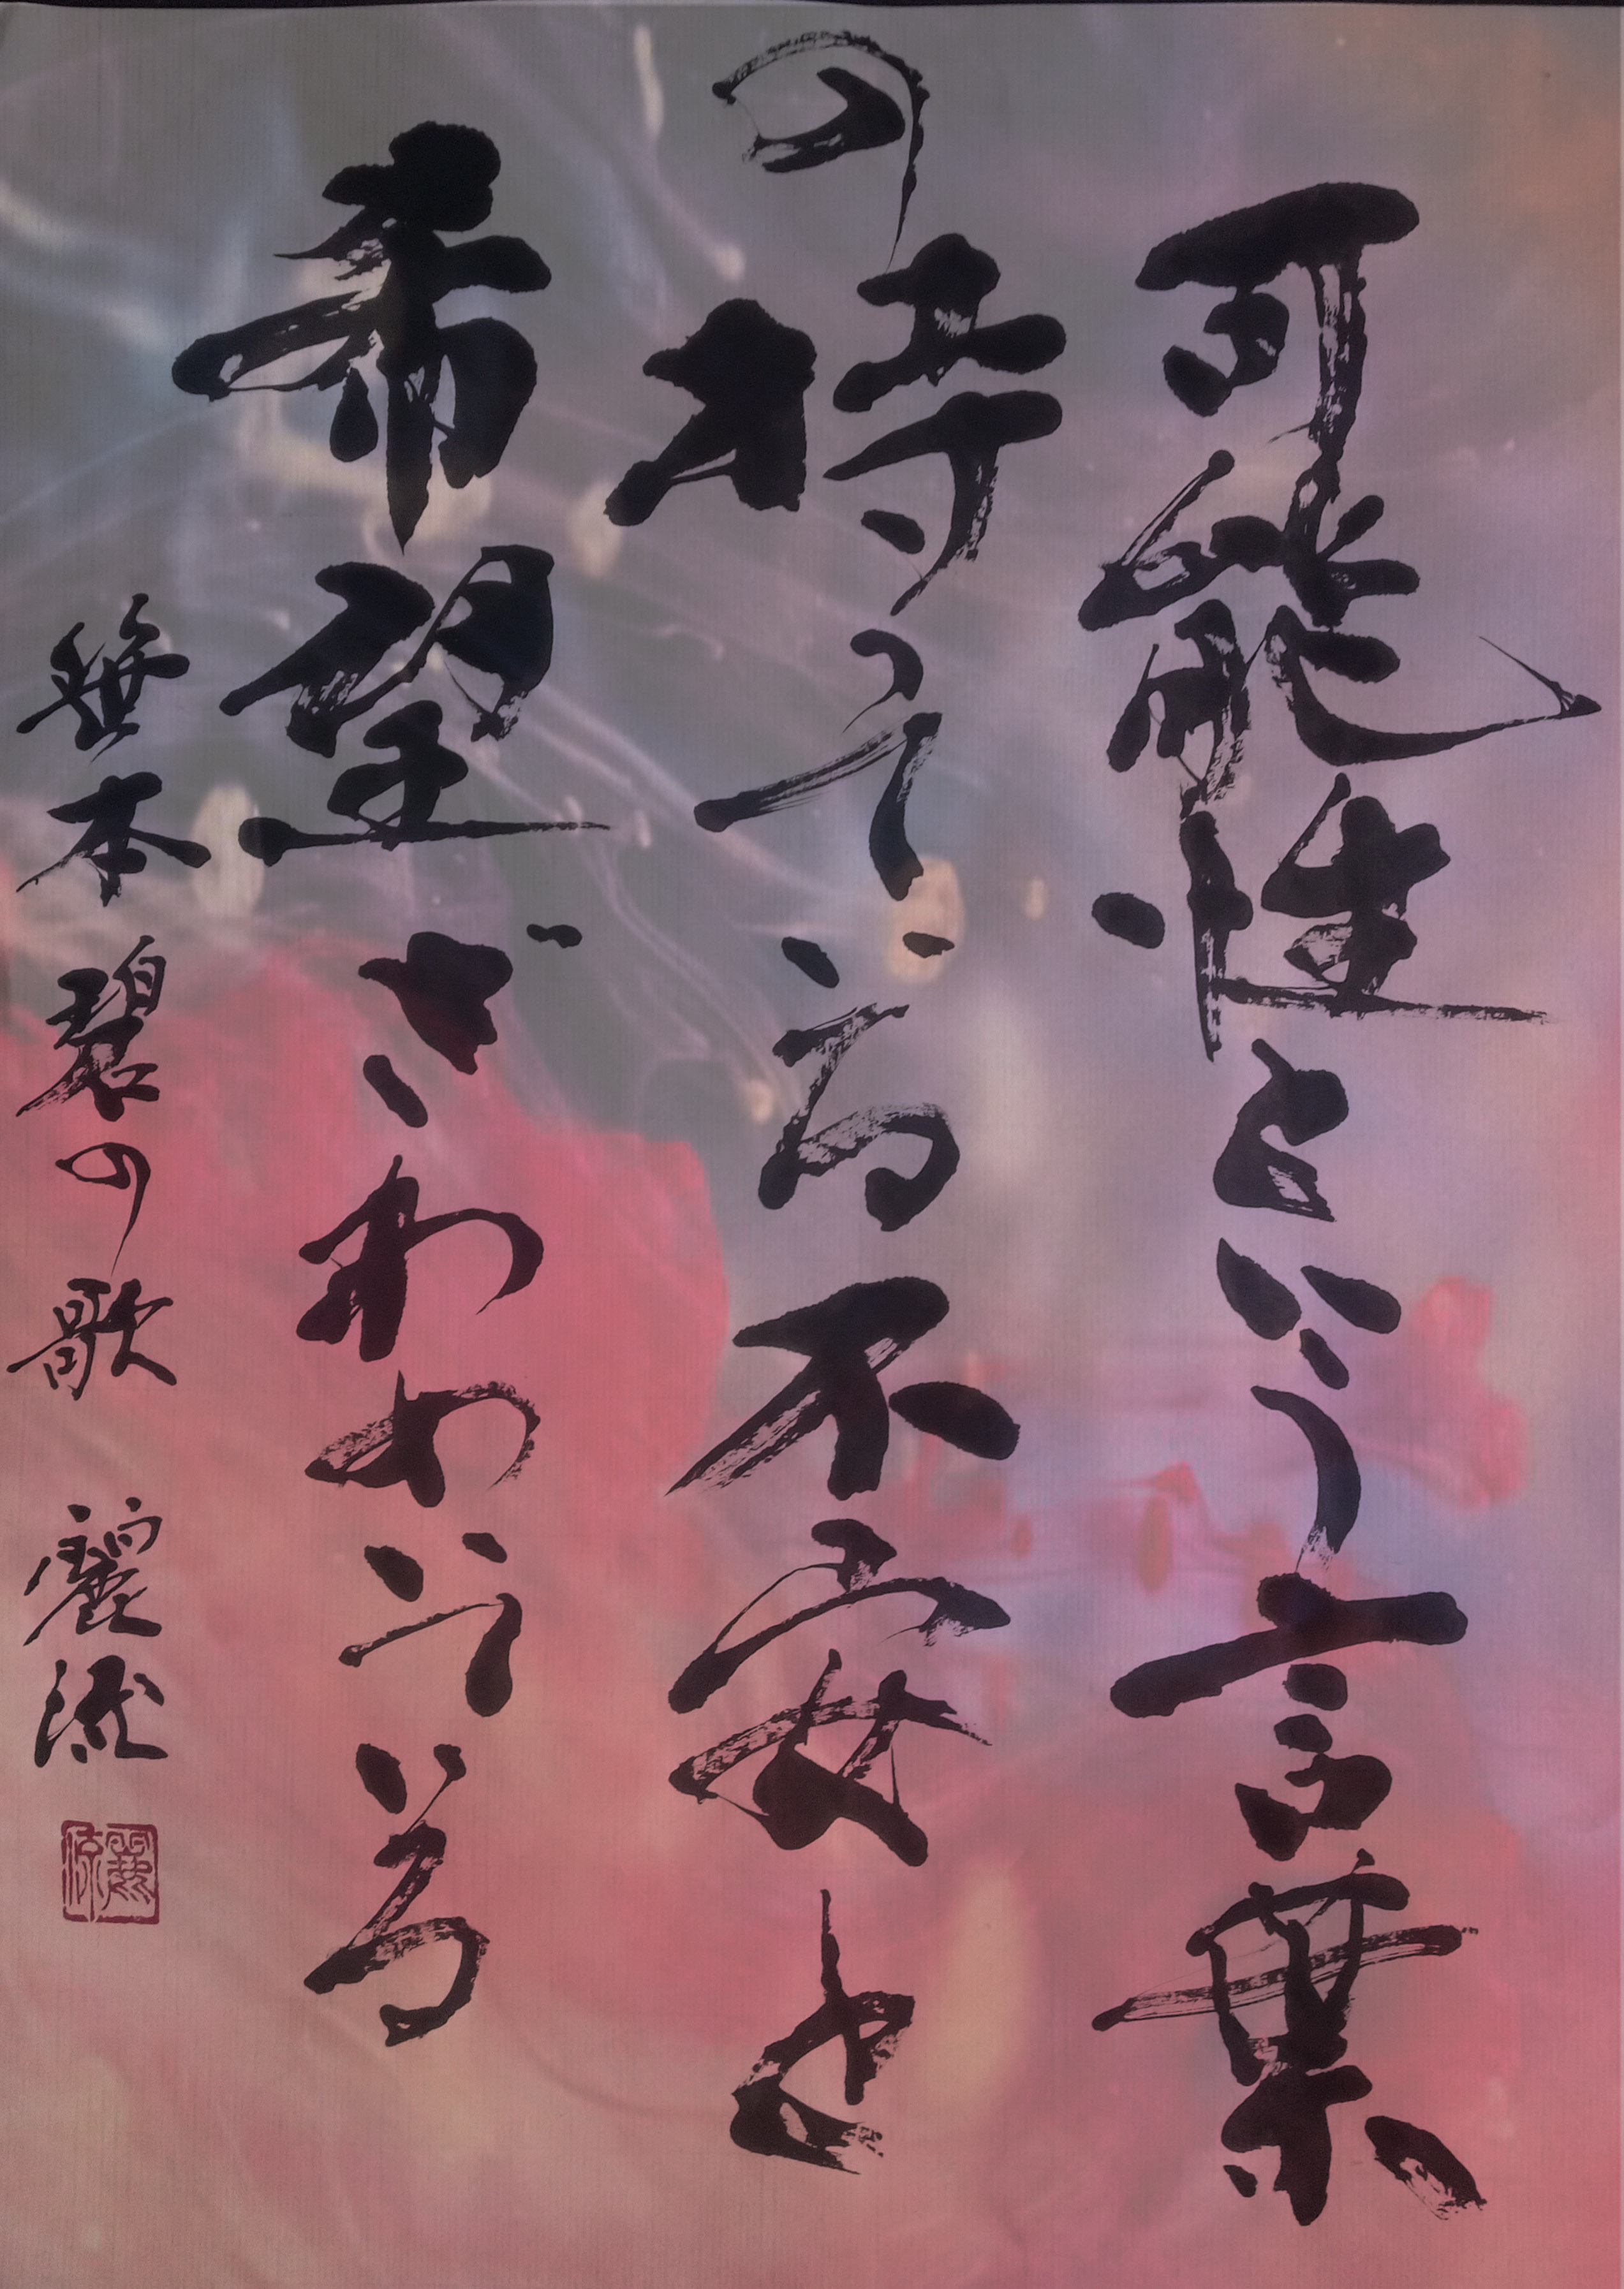 可能性という言葉
の持っている不安と
希望ざわわいている
笹本碧の歌 麗流
麗流